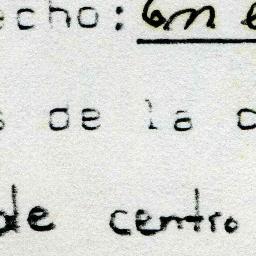 echo: en e
s de la c
de centro